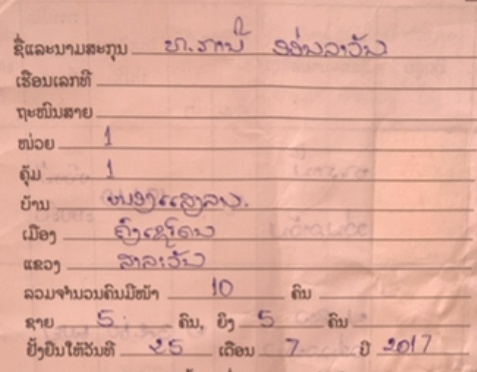 ຊື່ແລະນາມສະກຸນ ທ.
ເຮືອນເລກທີ
ຖະໜົນສາຍ
ໜ່ວຍ 1
ຄຸ້ມ 1
ບ້ານ
ເມືອງ ຄົງເຊໂດນ
ແຂວງ ສາລະວັນ
ລວມຈຳນວນຄົນມີໜ້າ 10 ຄົນ
ຊາຍ 5 ຄົນ, ຍິງ 5 ຄົນ
ຢັ້ງຢືນໃຫ້ວັນທີ 25 ເດືອນ 7 ປີ 2017